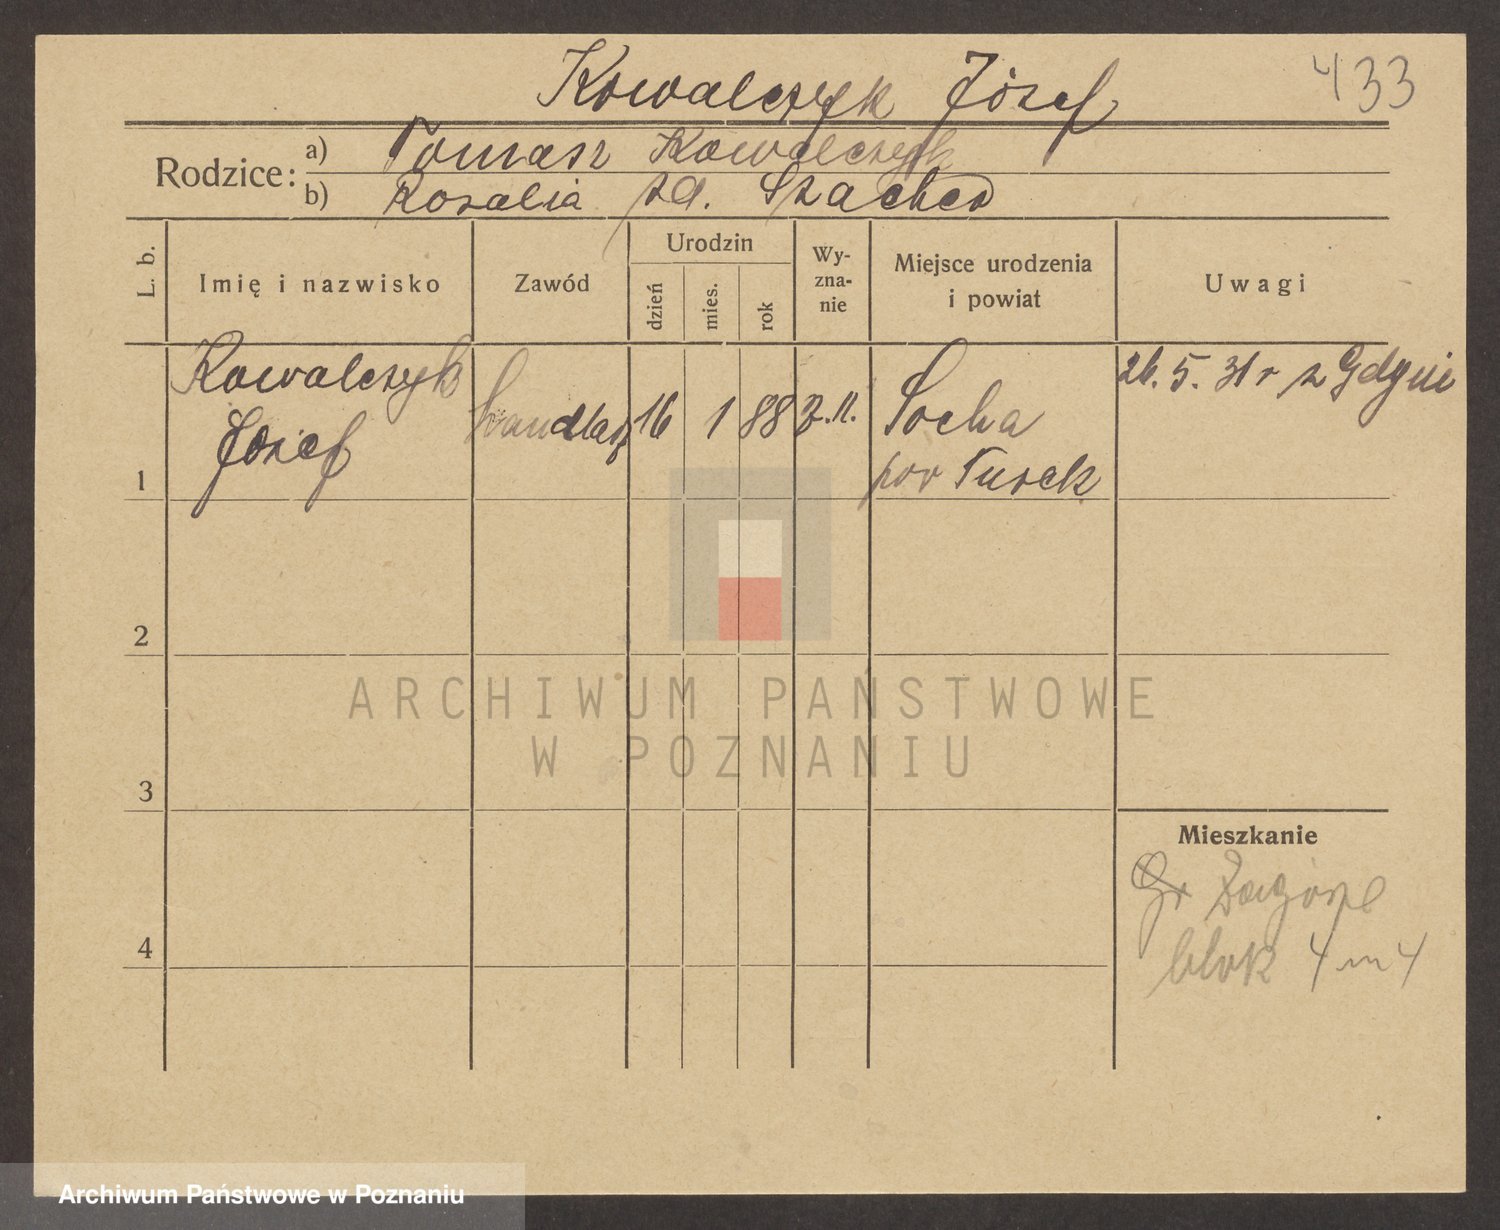 Kowalczyk Józef 433
Rodzice: a) Tomasz Kowalczyk
b) Rozalia zd.
L. b. Imię i nazwisko Zawód Urodzin dzień mies. rok Wy-zna-nie Miejsce urodzenia i powiat Uwagi
Kowalczyk 26.5.31 r z Gdyni
Józef handlarz 16 1 88 Socha
1 pow Turek
2
ARCHIWUM PAŃSTWOWE
W POZNANIU
3
Mieszkanie
4
blok 4 m 4
Archiwum Państwowe w Poznaniu